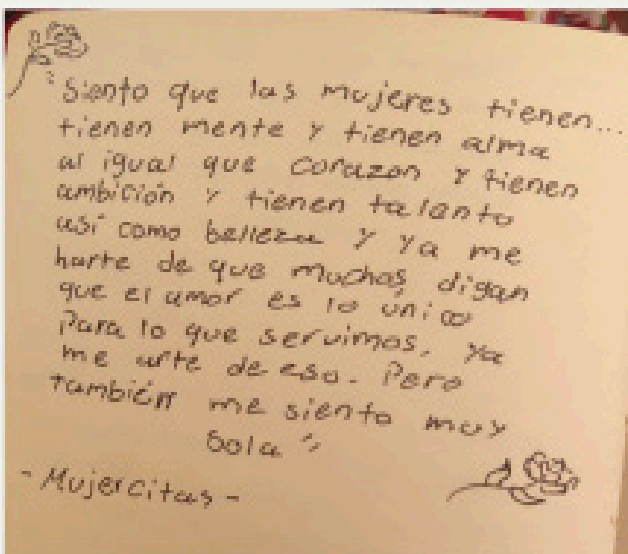 "Siento que las mujeres tienen...
tienen mente y tienen alma
al igual que corazon y tienen
ambición y tienen talento
así como belleza y ya me
harte de que muchos digan
que el amor es lo único
Para lo que servimos, ya
me arte de eso. Pero
también me siento muy
Sola"
- Mujercitas -